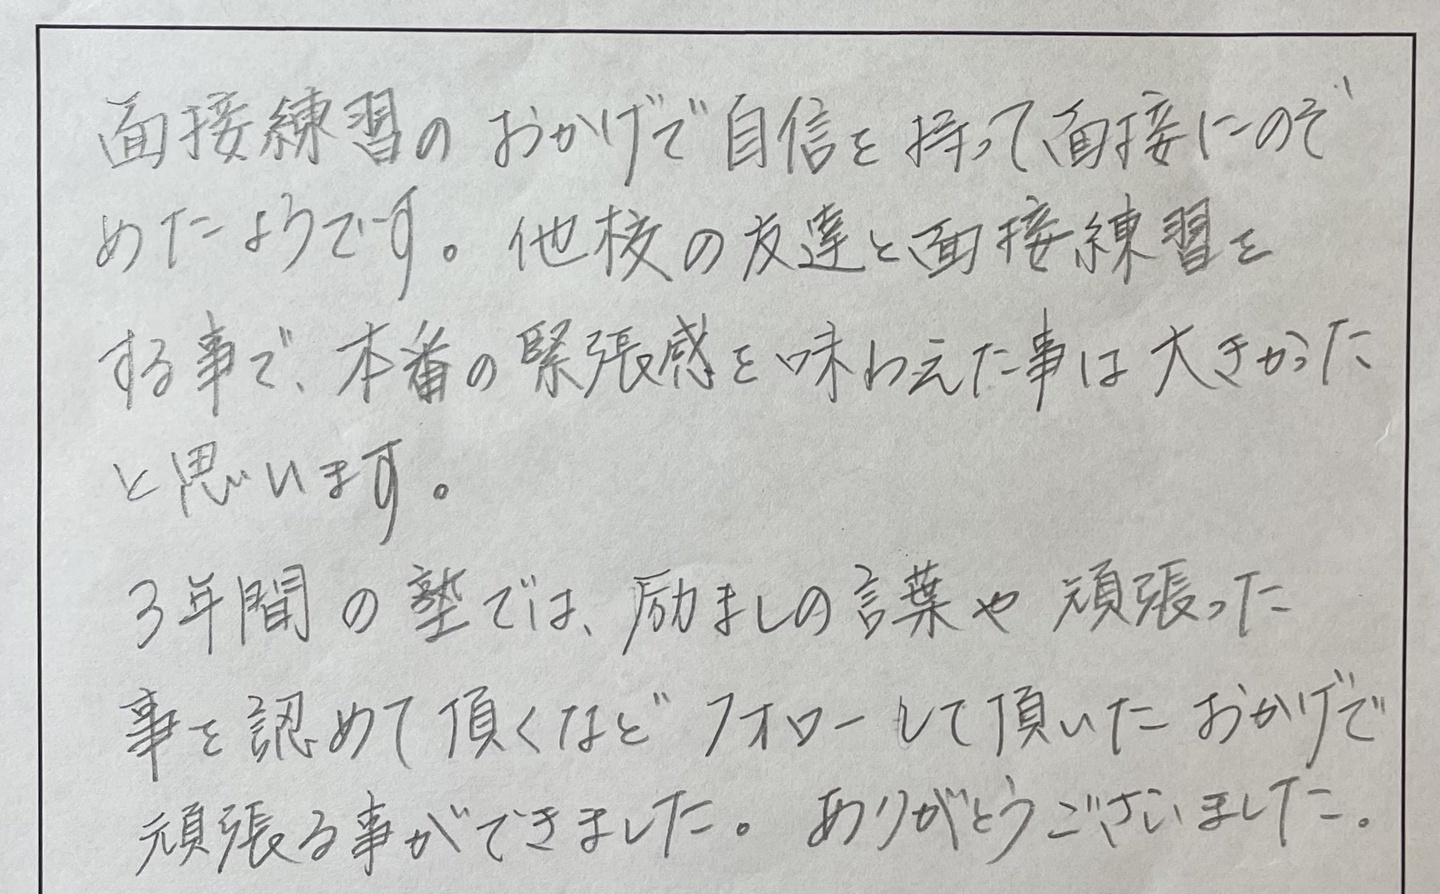 面接練習のおかげで自信を持って面接にのぞ
めたようです。他校の友達と面接練習を
する事で、本番の緊張感を味わえた事は大きかった
と思います。
3年間の塾では、励ましの言葉や頑張った
事を認めて頂くなどフォローして頂いたおかげで
頑張る事ができました。ありがとうございました。